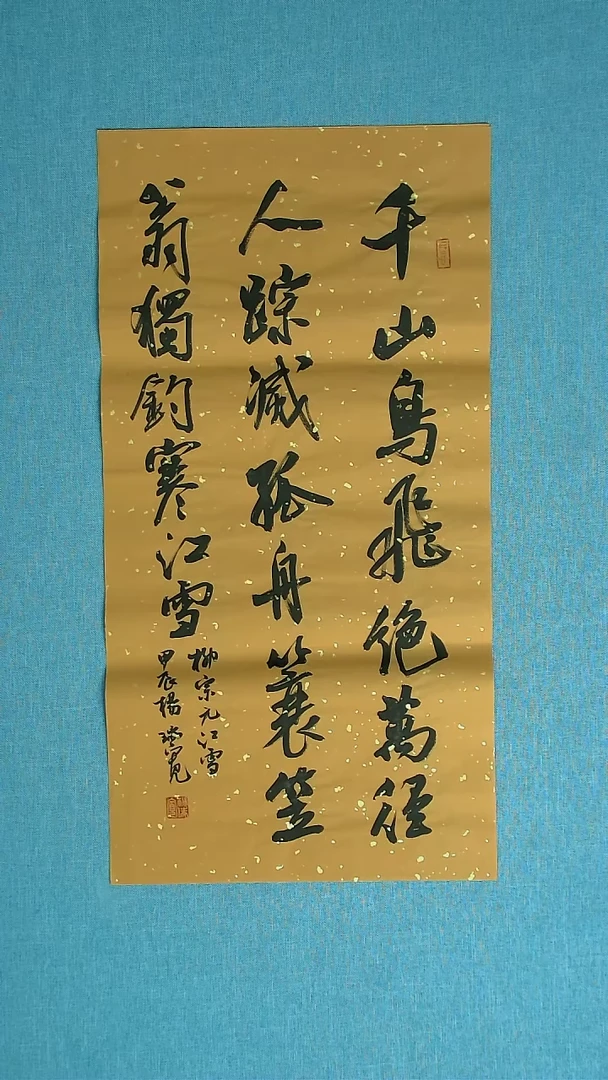 千山鳥飛絶萬徑
人踪滅孤舟簑笠
翁獨釣寒江雪
柳宗元江雪
甲辰楊瑞寬